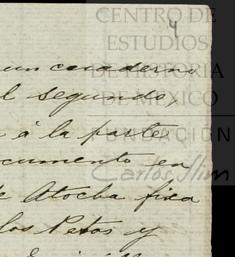 CENTRO DE
ESTUDIOS
DE HISTORIA
DE MÉXICO
FUNDACIÓN
Carlos Slim
4
un cuaderno
l segundo,
á la parte
cumento en
e Atocha fixa
los Petos y